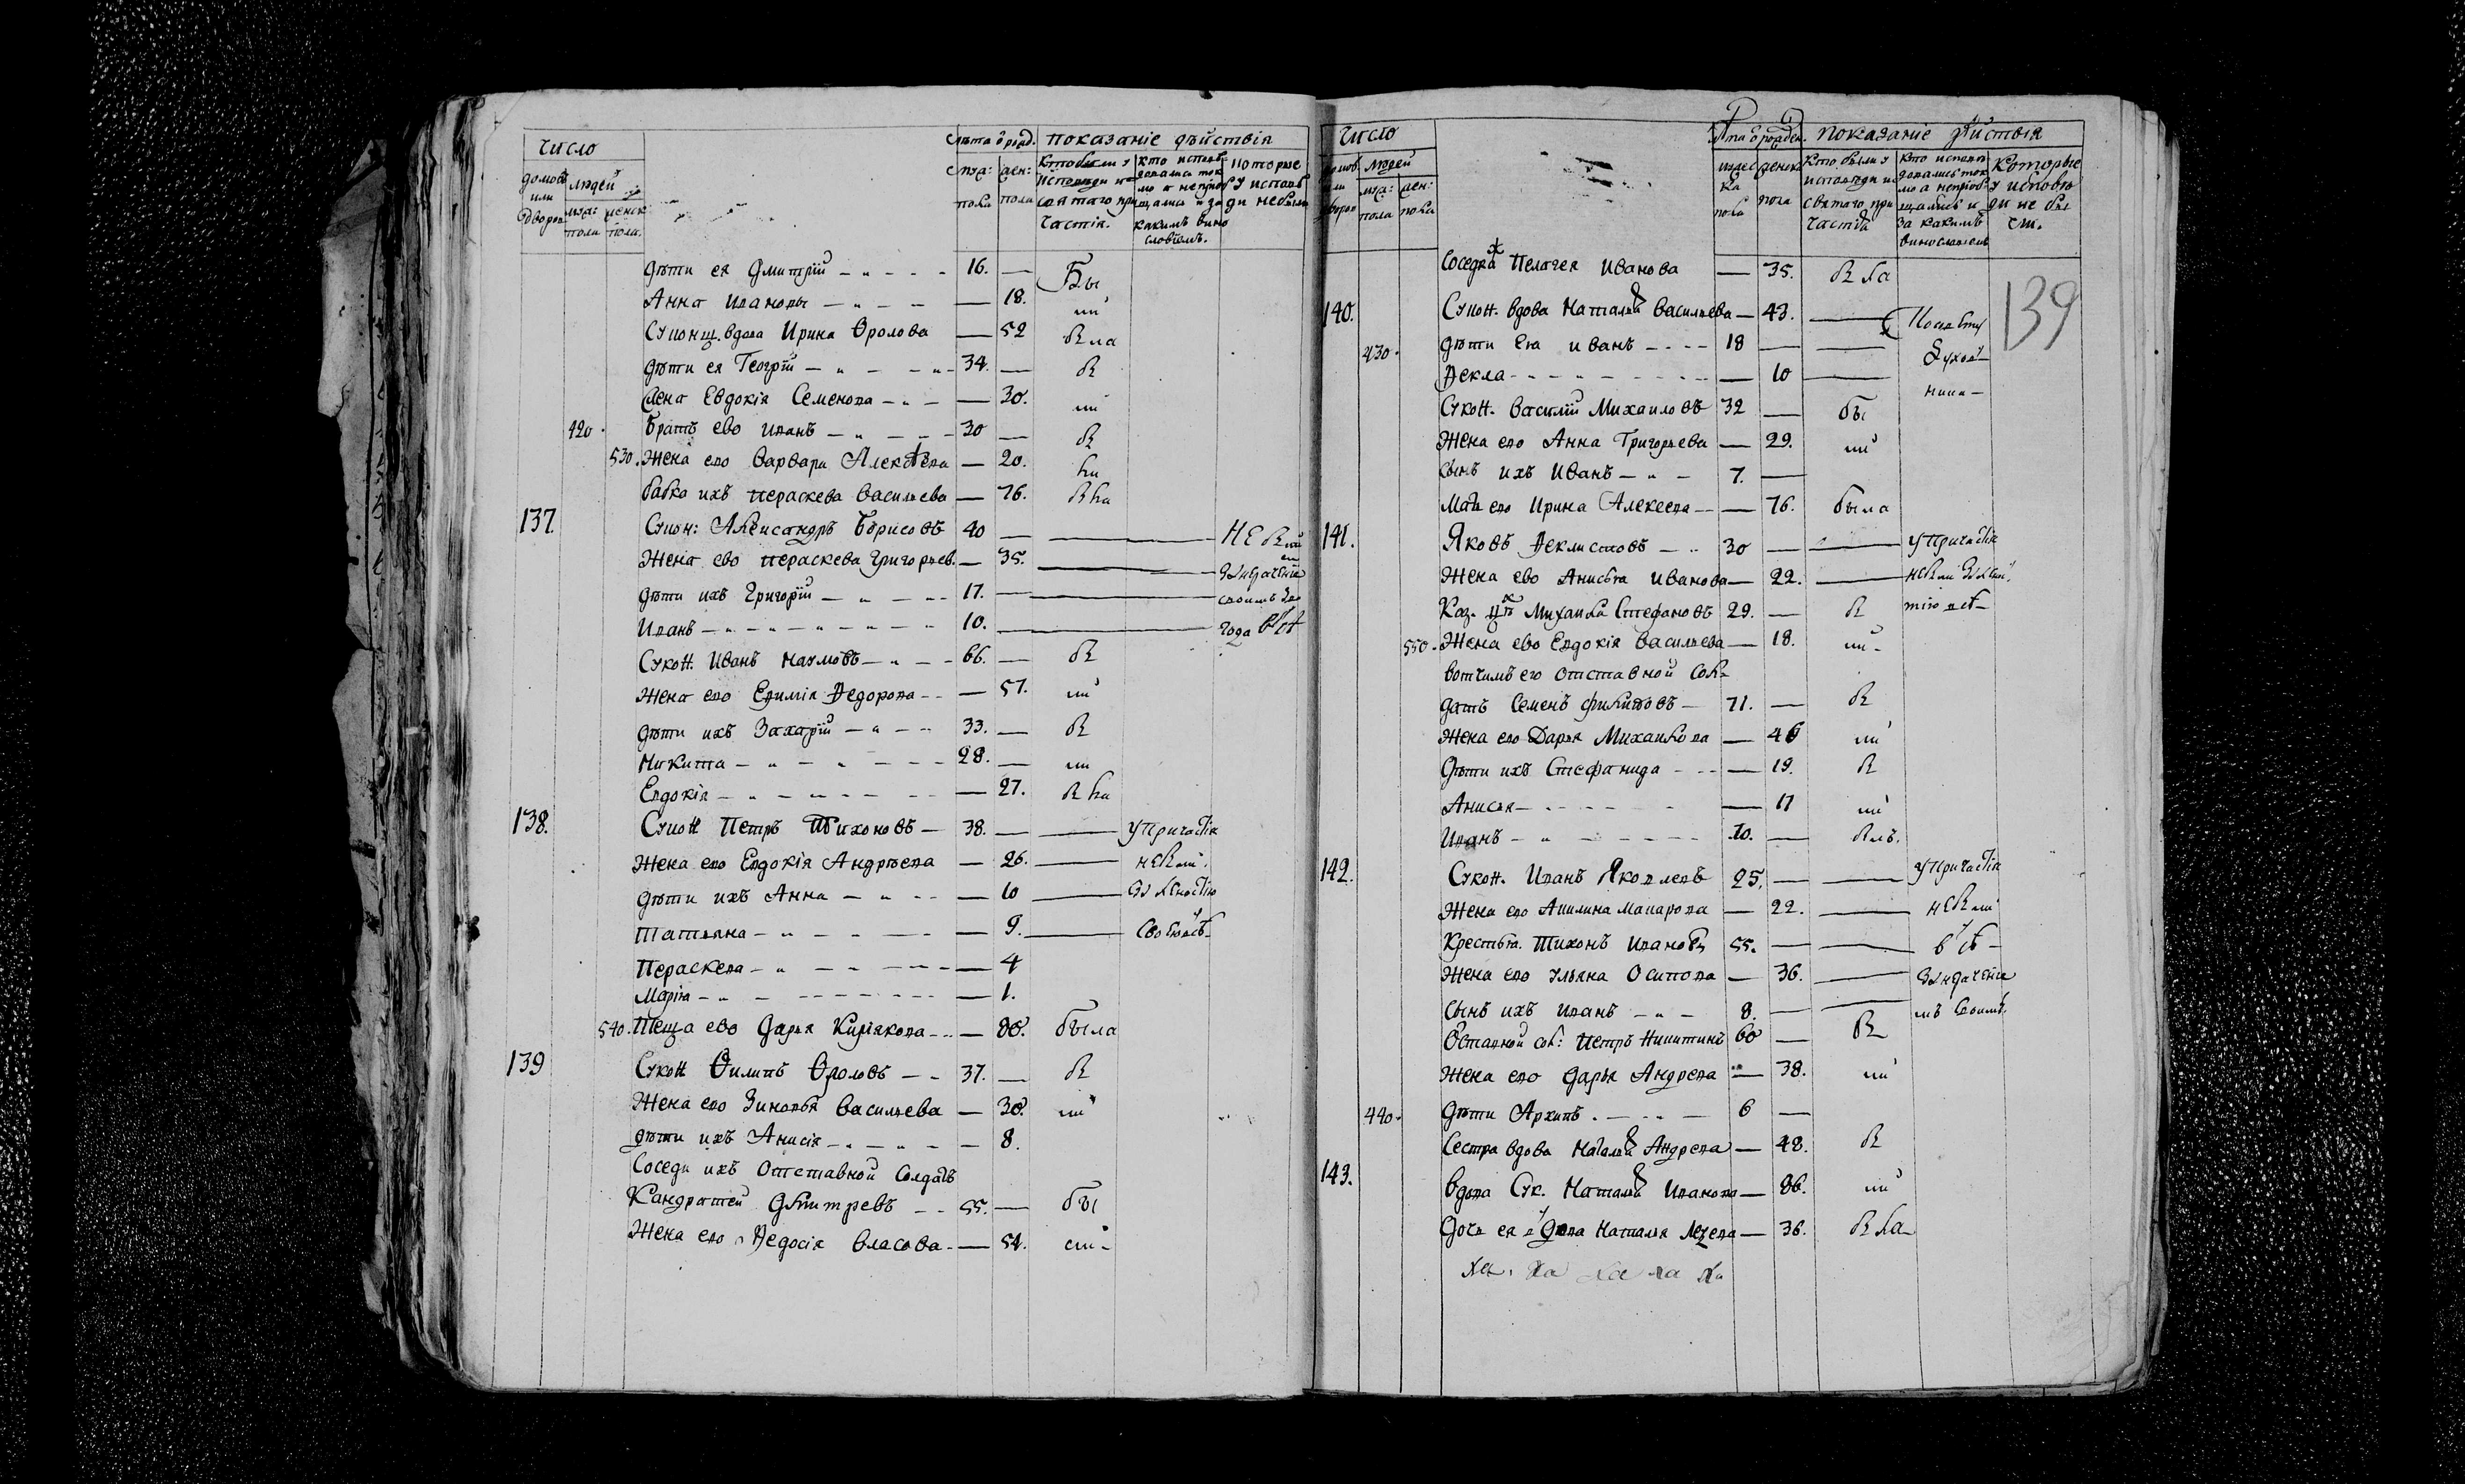 число
лѣта ѿ рожд.
показаніе дѣйствія
домовъ или дворов
людей
муз: пола
женск пола.
муз: пола
жен: пола
Кто были у исповѣди и святаго причастія.
кто исповѣдались ток мо а непріобщались и за какимъ винословіемъ.
которые у исповѣди небыли
дѣти ея Дмитрїй 16. —
Анна Ивановы — 18.
Бы
ли
Суконщ. вдова Ирина Ѳролова — 52 Была
дѣти ея Георгїй 34. — Бы
Жена Евдокїя Семенова — 30. ли
420. Братъ ево Иванъ 30 — Бы
530. Жена ево Варвара Алексѣева — 20. ла
бабка ихъ Пераскева Васильева — 76. Была
137. Сукон: Александръ Борисовъ 40 —
Жена ево Пераскева Григорьев. — 35.
дѣти ихъ Григорїй 17. —
Иванъ 10. —
Сукон. Иванъ Наумовъ 66. — Бы
Жена ево Евимїя Ѳедорова — 57. ли
дѣти ихъ Захарїй 33. — Бы
Никита 28. — ли
Евдокїя — 27. Была
138. Сукон Петръ Тихоновъ 38. — У Причастїя
Жена ево Евдокїя Андрѣева — 26. небыли.
дѣти ихъ Анна — 10
Татьяна — 9.
Пераскева — 4
Марїя — 1.
540. Теща ево Дарья Кирїякова — 80. была
139 Сукон Ѳилипъ Ѳроловъ 37. — Бы
Жена ево Зиновья Васильева — 30. ли
дѣти ихъ Анисїя — 8.
Соседи ихъ Отставной Солдатъ
Кандратей Дмитревъ 55. — бы
Жена ево Ѳедосїя Власова — 54. ли
число
лѣта ѿ рожден.
показаніе дѣйствія
домов. или дворов
людей
муз: пола
жен: пола
мужеска пола
женска пола
Кто были у исповѣди и святаго причастїя
Кто исповѣдались ток мо а непріобщались и за какимъ винословіемъ
Которые у исповѣди не были.
139
Соседка Пелагея Иванова — 35. Была
140. Сукон. вдова Наталья Васильева — 43.
430. дѣти Ея Иванъ 18 —
Ѳекла — 10
Сукон. Василїй Михаиловъ 32 — бы
Жена ево Анна Григорьева — 29. ли
Сынъ ихъ Иванъ 7. —
Мать ево Ирина Алексева — 76. была
141. Яковъ Ѳеклистовъ 30 — У Причастїя
Жена ево Анисья Иванова — 22.
Каз. Михаила Стефановъ 29. — Бы
550. Жена ево Евдокїя Васильева — 18. ли
Вотчимъ его отставной Сол-
датъ Семенъ Филиповъ 71. — Бы
Жена ево Дарья Михаилова — 46 ли
Дѣти ихъ Стефанида — 19. Бы
Анисья — 17 ли
Иванъ 10. — Былъ.
142. Сукон. Иванъ Яковлевъ 25. — У Причастїя
Жена ево Акилина Макарова — 22. небыли
Крестья. Тихонъ Ивановъ 55. —
Жена ево Ульяна Осипова — 36.
Сынъ ихъ Иванъ 8. —
Оставной сол: Петръ Никитинъ 60 — Бы
Жена ево Дарья Андрева — 38. ли
440. Дѣти Архипъ 6 —
Сестра вдова Наталья Андрева — 48. Бы
143. Вдова Сук. Наталья Иванова — 86. ли
Дочь ея вдова Наталья — 36. Была